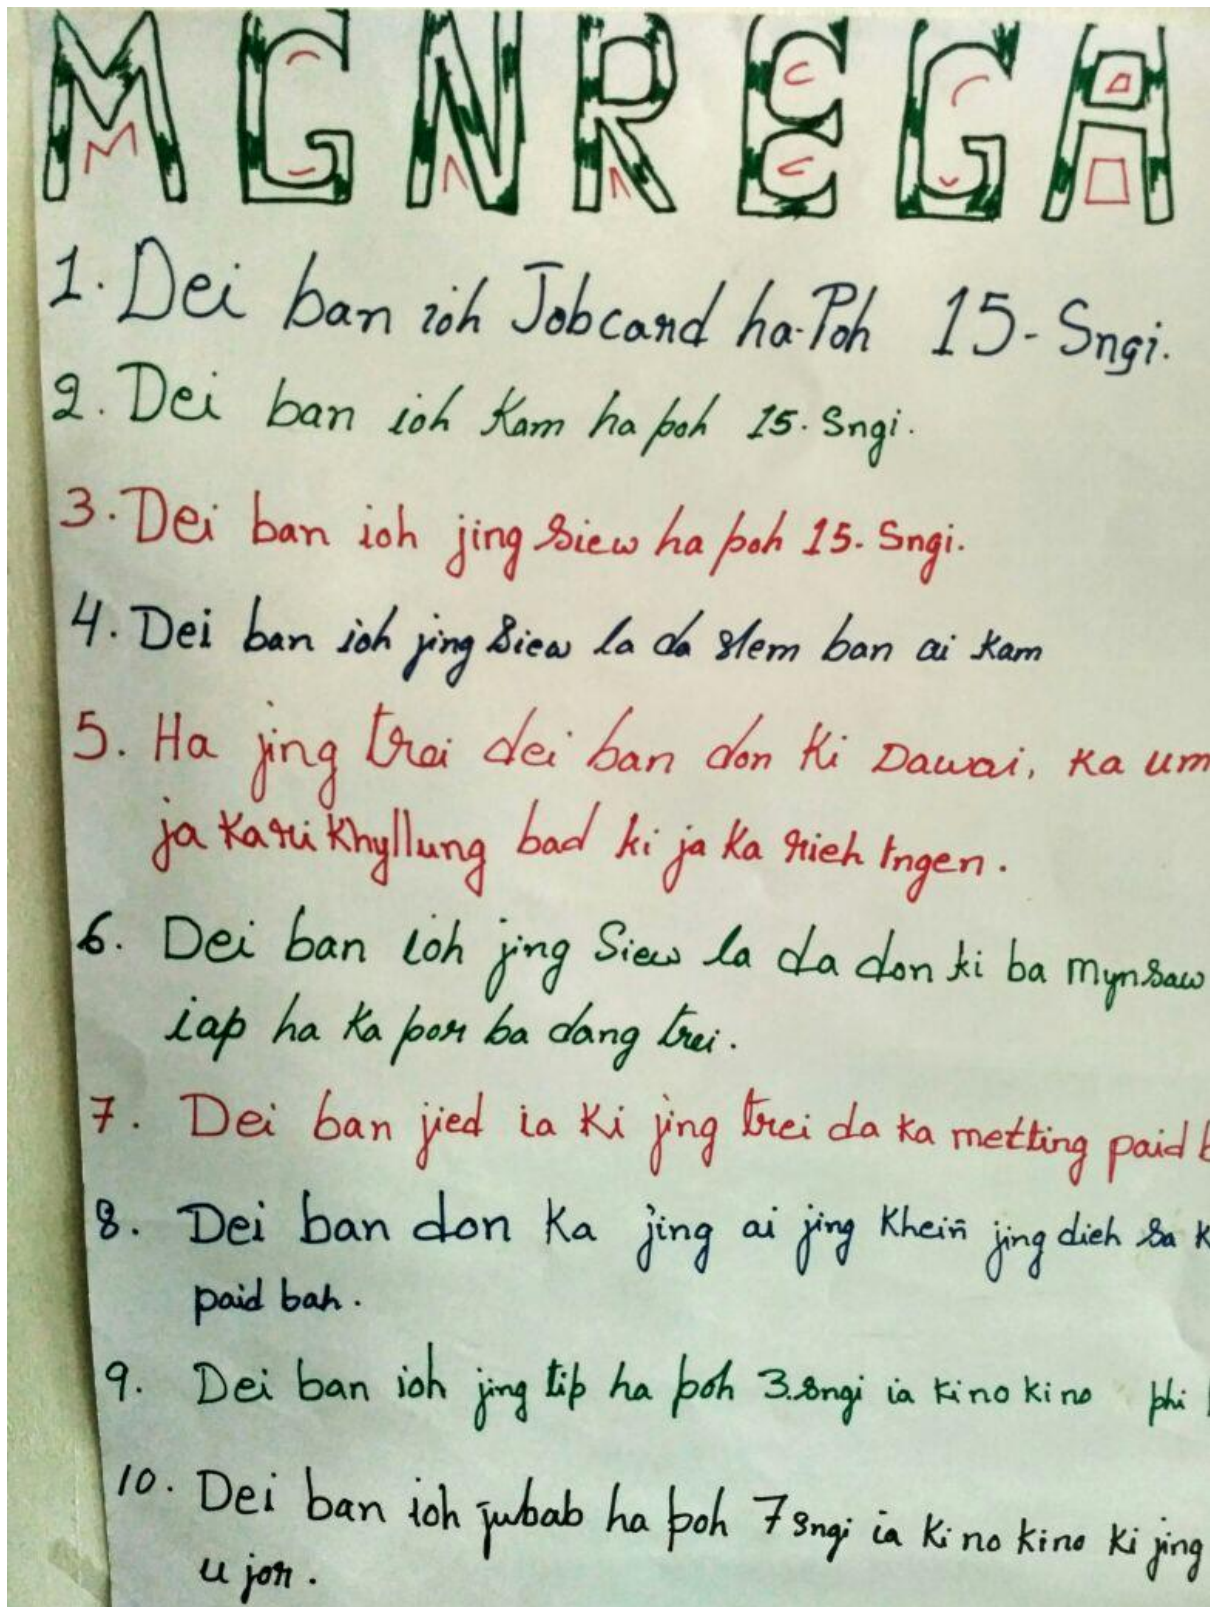 MGNREGA
1. Dei ban ioh Jobcard ha-Poh 15-Sngi.
2. Dei ban ioh Kam ha poh 15. Sngi.
3. Dei ban ioh jing siew ha poh 15. Sngi.
4. Dei ban ioh jing siew la da slem ban ai kam
5. Ha jing trei dei ban don ki Dawai, ka um
ja ka ri khyllung bad ki ja ka rieh tngen.
6. Dei ban ioh jing Siew la da don ki ba mynsaw
iap ha ka por ba dang trei.
7. Dei ban jied ia ki jing trei da ka metting paid
8. Dei ban don ka jing ai jing Khein jing dieh sa
paid bah.
9. Dei ban ioh jing tip ha poh 3.sngi ia kino kino phi
10. Dei ban ioh jubab ha poh 7 sngi ia kino kino ki jing
u jor.